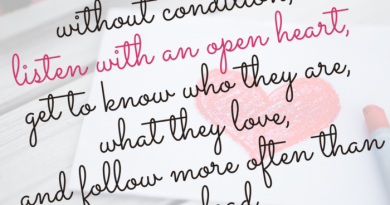 without condition,
listen with an open heart,
get to know who they are,
what they love,
and follow more often than
lead